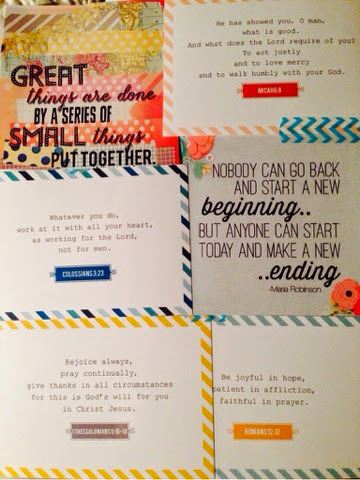 GREAT
things are done
BY A SERIES OF
SMALL things
PUT TOGETHER.
He has showed you, O man,
what is good.
And what does the Lord require of you?
To act justly
and to love mercy
and to walk humbly with your God.
MICAH 6:8
Whatever you do,
work at it with all your heart,
as working for the Lord,
not for men.
COLOSSIANS 3:23
NOBODY CAN GO BACK
AND START A NEW
beginning..
BUT ANYONE CAN START
TODAY AND MAKE A NEW
..ending
-Maria Robinson
Rejoice always,
pray continually,
give thanks in all circumstances
for this is God's will for you
in Christ Jesus.
1 THESSALONIANS 5:16-18
Be joyful in hope,
patient in affliction,
faithful in prayer.
ROMANS 12:12